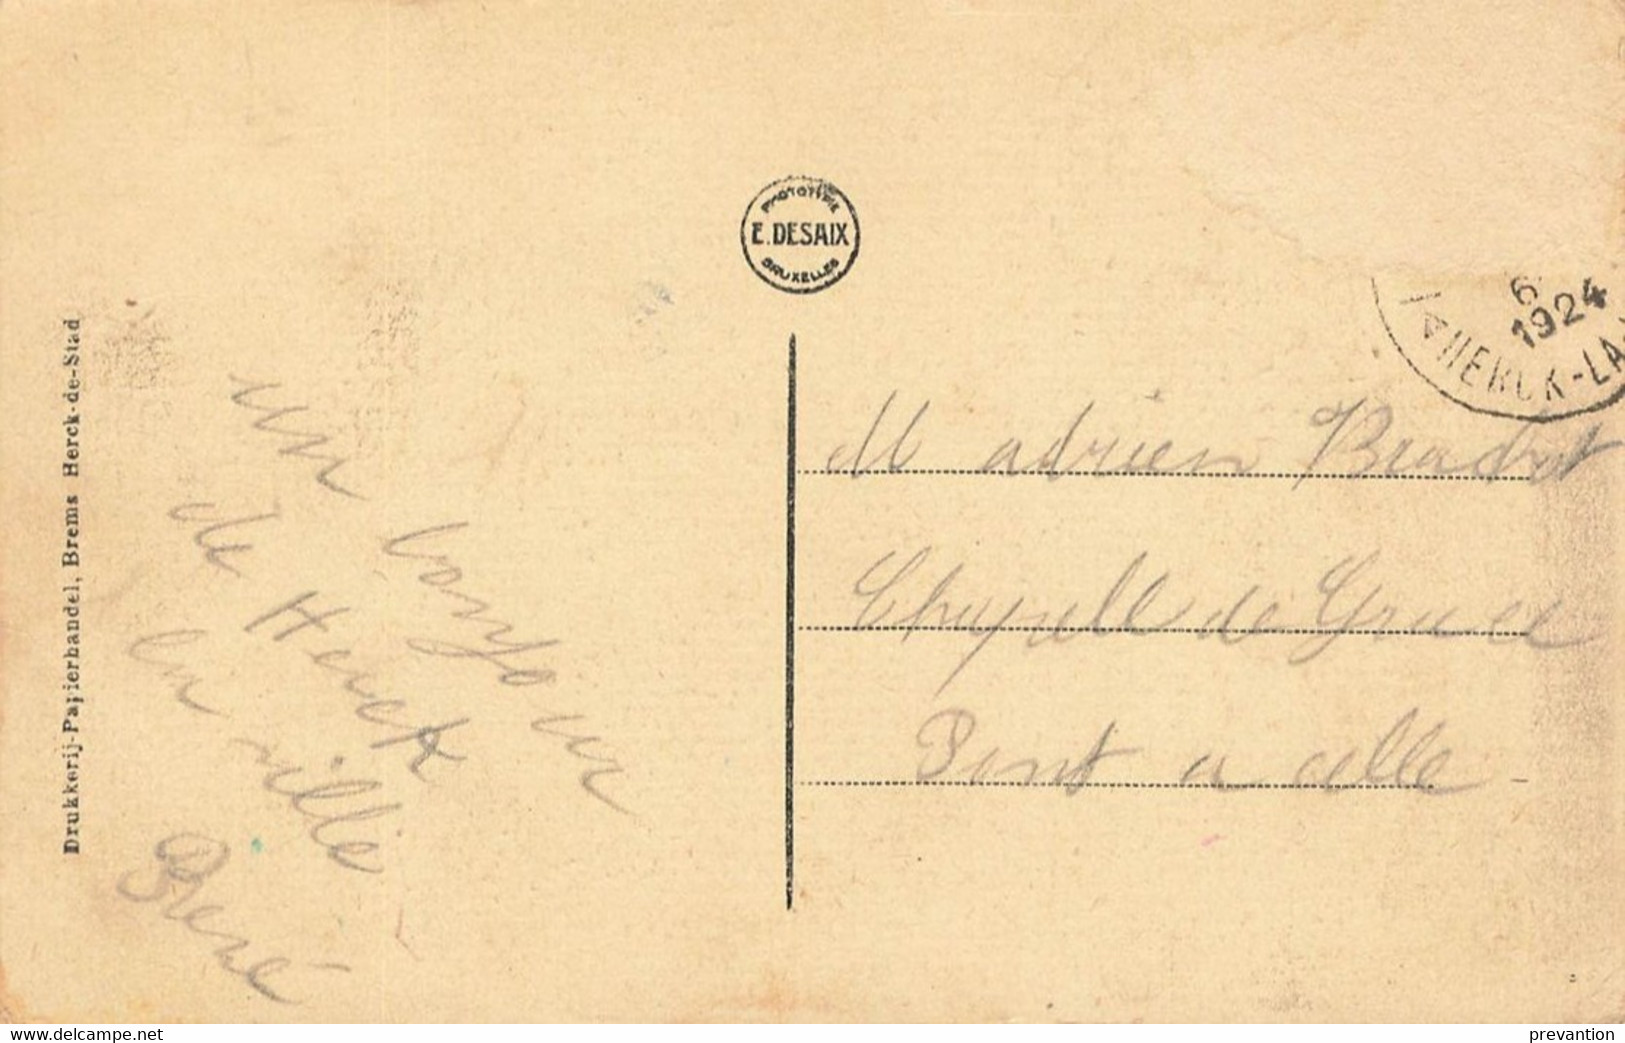 Drukkerij-Papierhandel, Brems Herck-de-Stad
un bonjour
de Herck
la ville
René
PHOTOTYPIE
E. DESAIX
BRUXELLES
6
1924
HERCK-LA
M adrien
Chapelle de Grace
Pont a celle
www.delcampe.net
prevantion